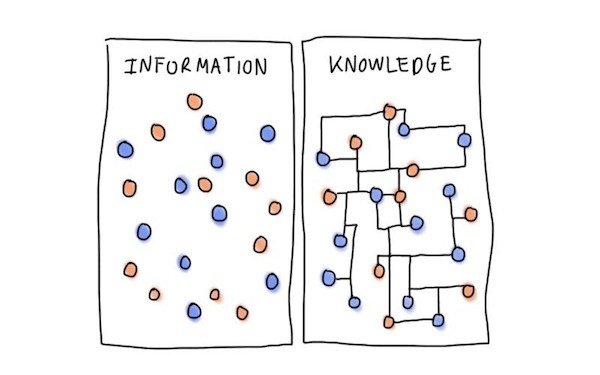 INFORMATION
KNOWLEDGE